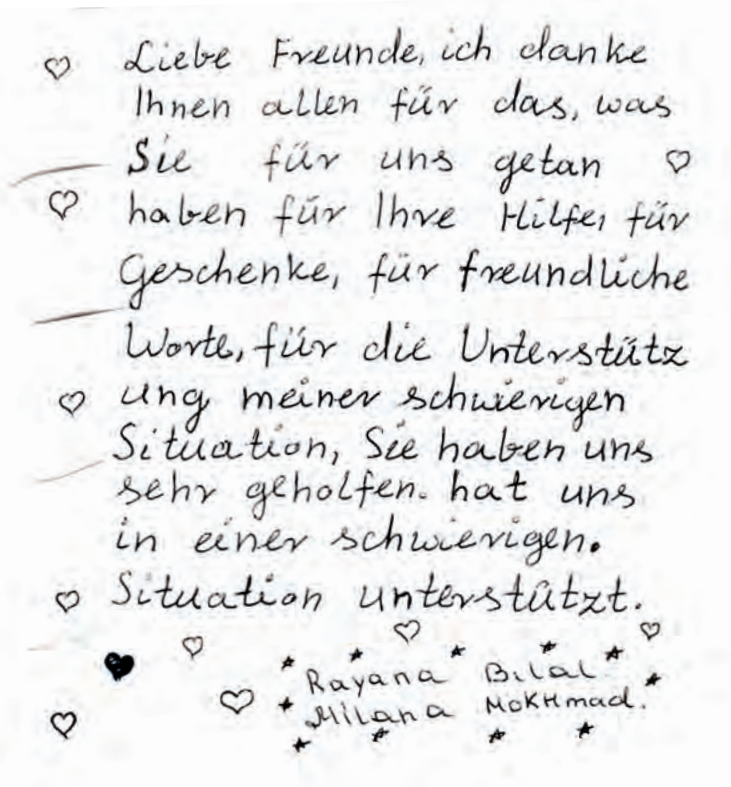 Liebe Freunde, ich danke
Ihnen allen für das, was
Sie für uns getan
haben für Ihre Hilfe, für
Geschenke, für freundliche
Worte, für die Unterstütz
ung meiner schwierigen
Situation, Sie haben uns
sehr geholfen. hat uns
in einer schwierigen.
Situation unterstützt.
Rayana Bilal
Milana Mokhmad.